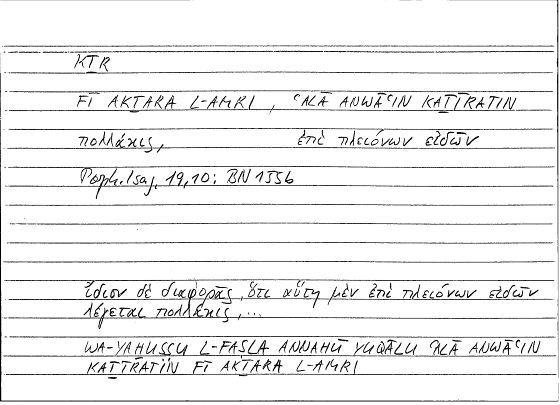 KṮR
FĪ AKṮARA L-AMRI , ʿALĀ ANWĀʿIN KAṮĪRATIN
πολλάκις, ἐπὶ πλειόνων εἰδῶν
Porph. Isag. 19,10; BN 155b
ἴδιον δὲ διαφορᾶς, ὅτι αὕτη μὲν ἐπὶ πλειόνων εἰδῶν
λέγεται πολλάκις,...
WA-YAḪUṢṢU L-FAṢLA ANNAHŪ YUQĀLU ʿALĀ ANWĀʿIN
KAṮĪRATIN FĪ AKṮARA L-AMRI